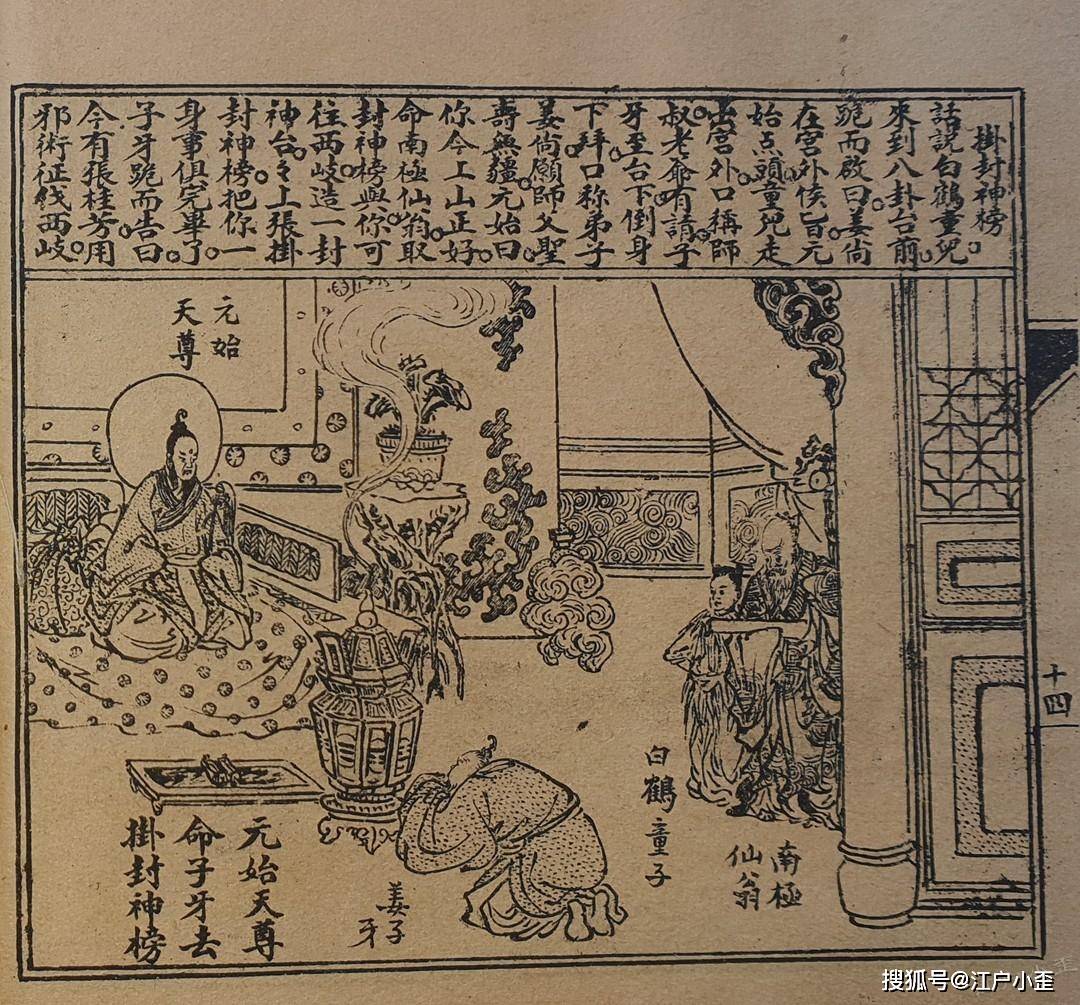 掛封神榜。
話說白鶴童兒
來到八卦台前。
跪而啟曰。姜尚
在宮外俟旨。元
始点頭。童兒走
出宮外。口稱師
叔老爺有請。子
牙至台下。倒身
下拜。口称弟子
姜尚願師父聖
壽無疆。元始曰。
你今上山正好。
命南極仙翁取
封神榜與你。可
往西岐造一封
神台。台上張掛
封神榜。把你一
身事俱完畢了。
子牙跪而告曰。
今有張桂芳。用
邪術征伐西岐。
元始
天尊
白鶴童子
南極
仙翁
姜子
牙
元始天尊
命子牙去
掛封神榜
十四
搜狐号@江户小歪